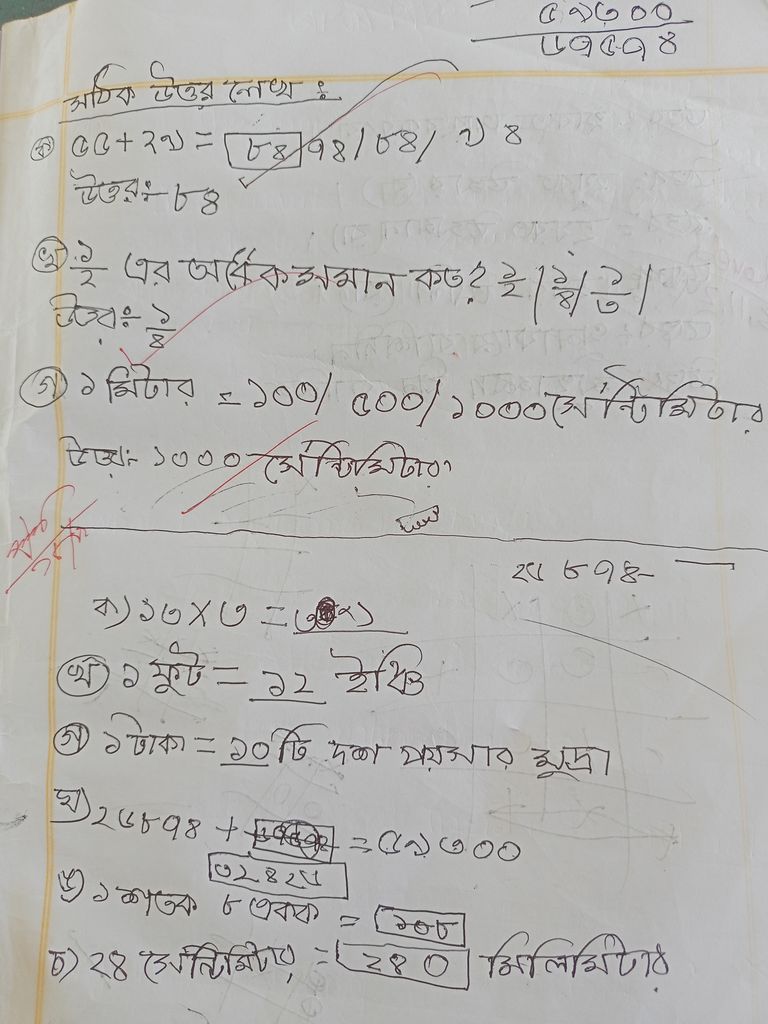 ৫৯৩০০
৬৭৫৭৪
সঠিক উত্তর লেখ :
ক) ৫৫+২৯ = ৮৪ ৭৪/৮৪/ ৯৪
উত্তর:- ৮৪
খ) ১/২ এর অর্ধেক সমান কত? ১/২ | ১/৪ | ১/৩ |
উত্তর:- ১/৪
গ) ১ মিটার = ১০০/ ৫০০/ ১০০০ সেন্টিমিটার
উত্তর:- ১০০০ সেন্টিমিটার।
২৬৮৭৪
ক) ১৩ X ৩ = ৩৯
খ) ১ ফুট = ১২ ইঞ্চি
গ) ১ টাকা = ১০টি দশ পয়সার মুদ্রা
ঘ) ২৬৮৭৪ + = ৫৯৩০০
৩২৪২৬
ঙ) ১ শতক ৮ একক = ১০৮
চ) ২৪ সেন্টিমিটার = ২৪০ মিলিমিটার